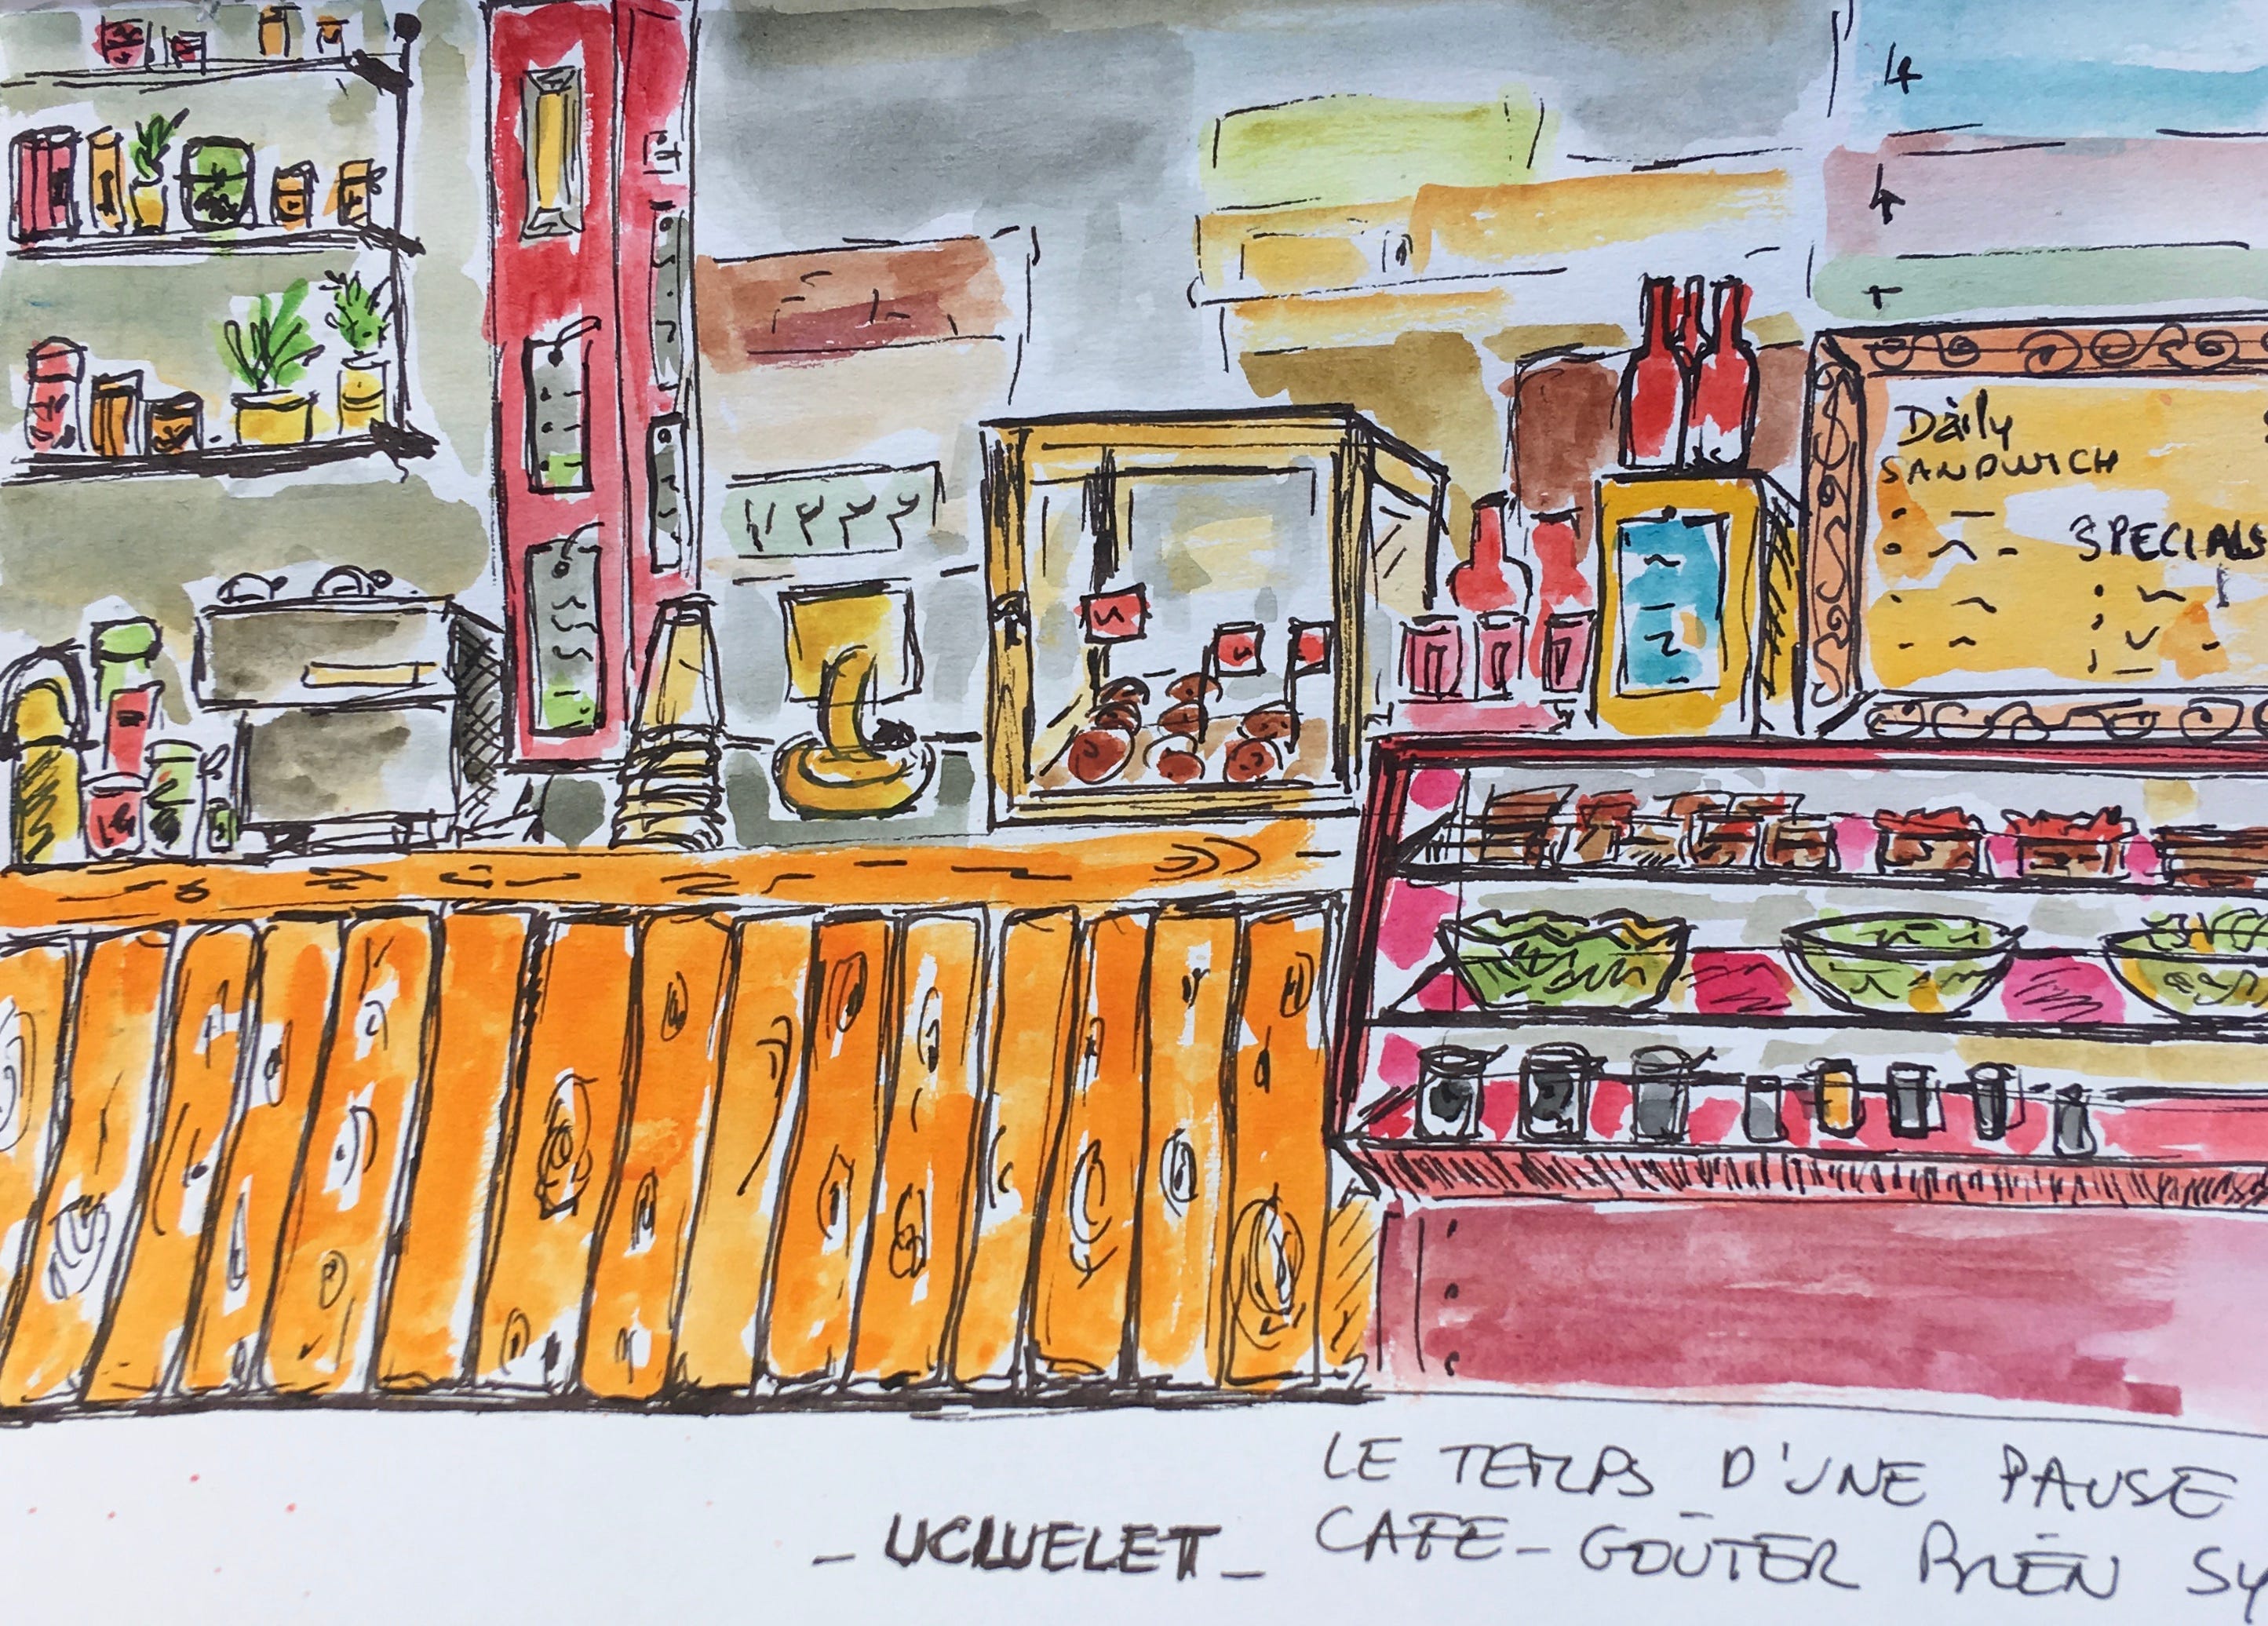 Daily
SANDWICH
SPECIALS
LE TEMPS D'UNE PAUSE
CAFE-GOÛTER BIEN SY
_ UCLUELET _